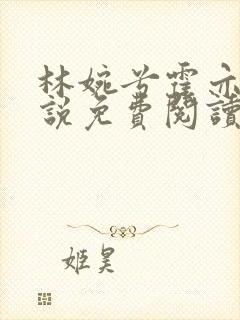 林婉兮霍亦
說免費閱讀
姬昊